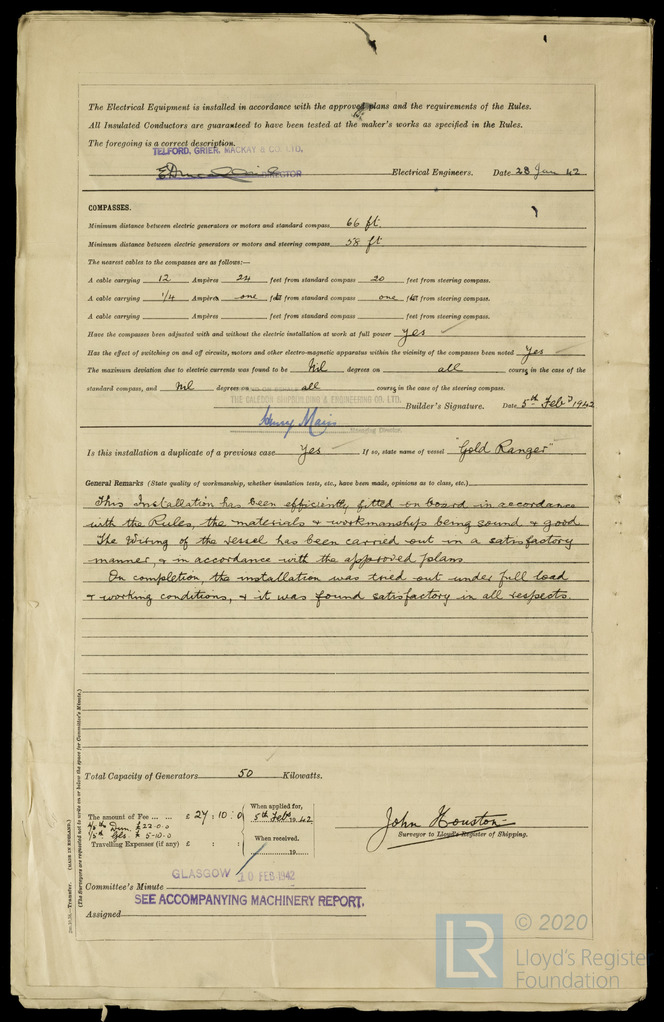 The Electrical Equipment is installed in accordance with the approved plans and the requirements of the Rules.
All Insulated Conductors are guaranteed to have been tested at the maker's works as specified in the Rules.
The foregoing is a correct description.
TELFORD, GRIER, MACKAY & CO. LTD.
DIRECTOR Electrical Engineers. Date 23 Jan 42
COMPASSES.
Minimum distance between electric generators or motors and standard compass 66 ft.
Minimum distance between electric generators or motors and steering compass 58 ft
The nearest cables to the compasses are as follows:—
A cable carrying 12 Ampères 24 feet from standard compass 20 feet from steering compass.
A cable carrying 1/4 Ampères one feet from standard compass one feet from steering compass.
A cable carrying Ampères feet from standard compass feet from steering compass.
Have the compasses been adjusted with and without the electric installation at work at full power yes
Has the effect of switching on and off circuits, motors and other electro-magnetic apparatus within the vicinity of the compasses been noted Yes
The maximum deviation due to electric currents was found to be Nil degrees on all course in the case of the
standard compass, and Nil degrees on all course in the case of the steering compass.
THE CALEDON SHIPBUILDING & ENGINEERING CO. LTD.
Henry Main Builder's Signature. Date 5th Feby 1942
Managing Director.
Is this installation a duplicate of a previous case Yes If so, state name of vessel "Gold Ranger"
General Remarks (State quality of workmanship, whether insulation tests, etc., have been made, opinions as to class, etc.)
This Installation has been efficiently fitted on board in accordance
with the Rules, the materials & workmanship being sound & good.
The Wiring of the vessel has been carried out in a satisfactory
manner, & in accordance with the approved plans
On completion, the installation was tried out under full load
& working conditions, & it was found satisfactory in all respects.
Total Capacity of Generators 50 Kilowatts.
The amount of Fee ... ... £ 27 : 10 : 0
4/5th Dun. £22.0.0
1/5th Gls. £ 5-10.0
Travelling Expenses (if any) £ : :
When applied for,
5th Feby 1942
When received,
19
John Houston
Surveyor to Lloyd's Register of Shipping.
GLASGOW 10 FEB 1942
Committee's Minute
SEE ACCOMPANYING MACHINERY REPORT.
Assigned
Transfer. (MADE IN ENGLAND.)
(The Surveyors are requested not to write on or below the space for Committee's Minute.)
LR
© 2020
Lloyd's Register
Foundation